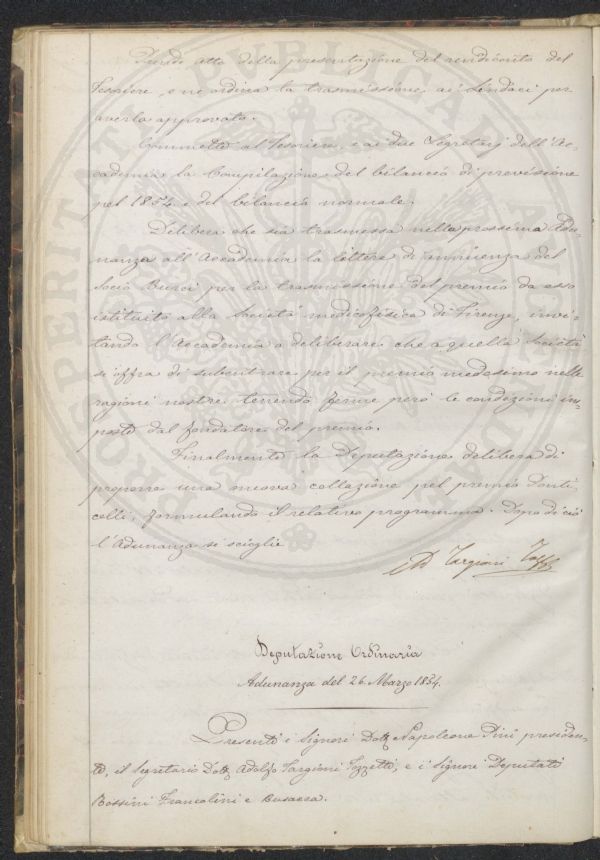 Prende atto della presentazione del rendiconto del
Tesoriere, e ne ordina la trasmissione ai Sindaci per
averla approvata.
Commette al Tesoriere, e ai due Segretarj dell'Ac-
cademia la Compilazione del bilancio di previsione
pel 1854 e del bilancio normale.
Delibera che sia trasmessa nella prossima Adu-
nanza all'Accademia la lettera di annuenza del
Socio Burci per la trasmissione del premio da esso
istituito alla Società medicofisica di Firenze, invi-
tando l'Accademia a deliberare che a quella Società
si offra di subentrare per il premio medesimo nelle
ragioni nostre tenendo ferme però le condizioni im-
poste dal fondatore del premio.
Finalmente la Deputazione delibera di
proporre una nuova collazione pel premio
formulando il relativo programma. Dopo di ciò
l'Adunanza si scioglie
AD Targioni Tozz
Deputazione Ordinaria
Adunanza del 26. Marzo 1854.
Presenti i Signori Dott. Napoleone Pini presiden-
te, il Segretario Dott. Adolfo Targioni Tozzetti, e i Signori Deputati
Bossini Francolini e Busacca.
PROSPERITATI PUBLICAE AUGENDAE